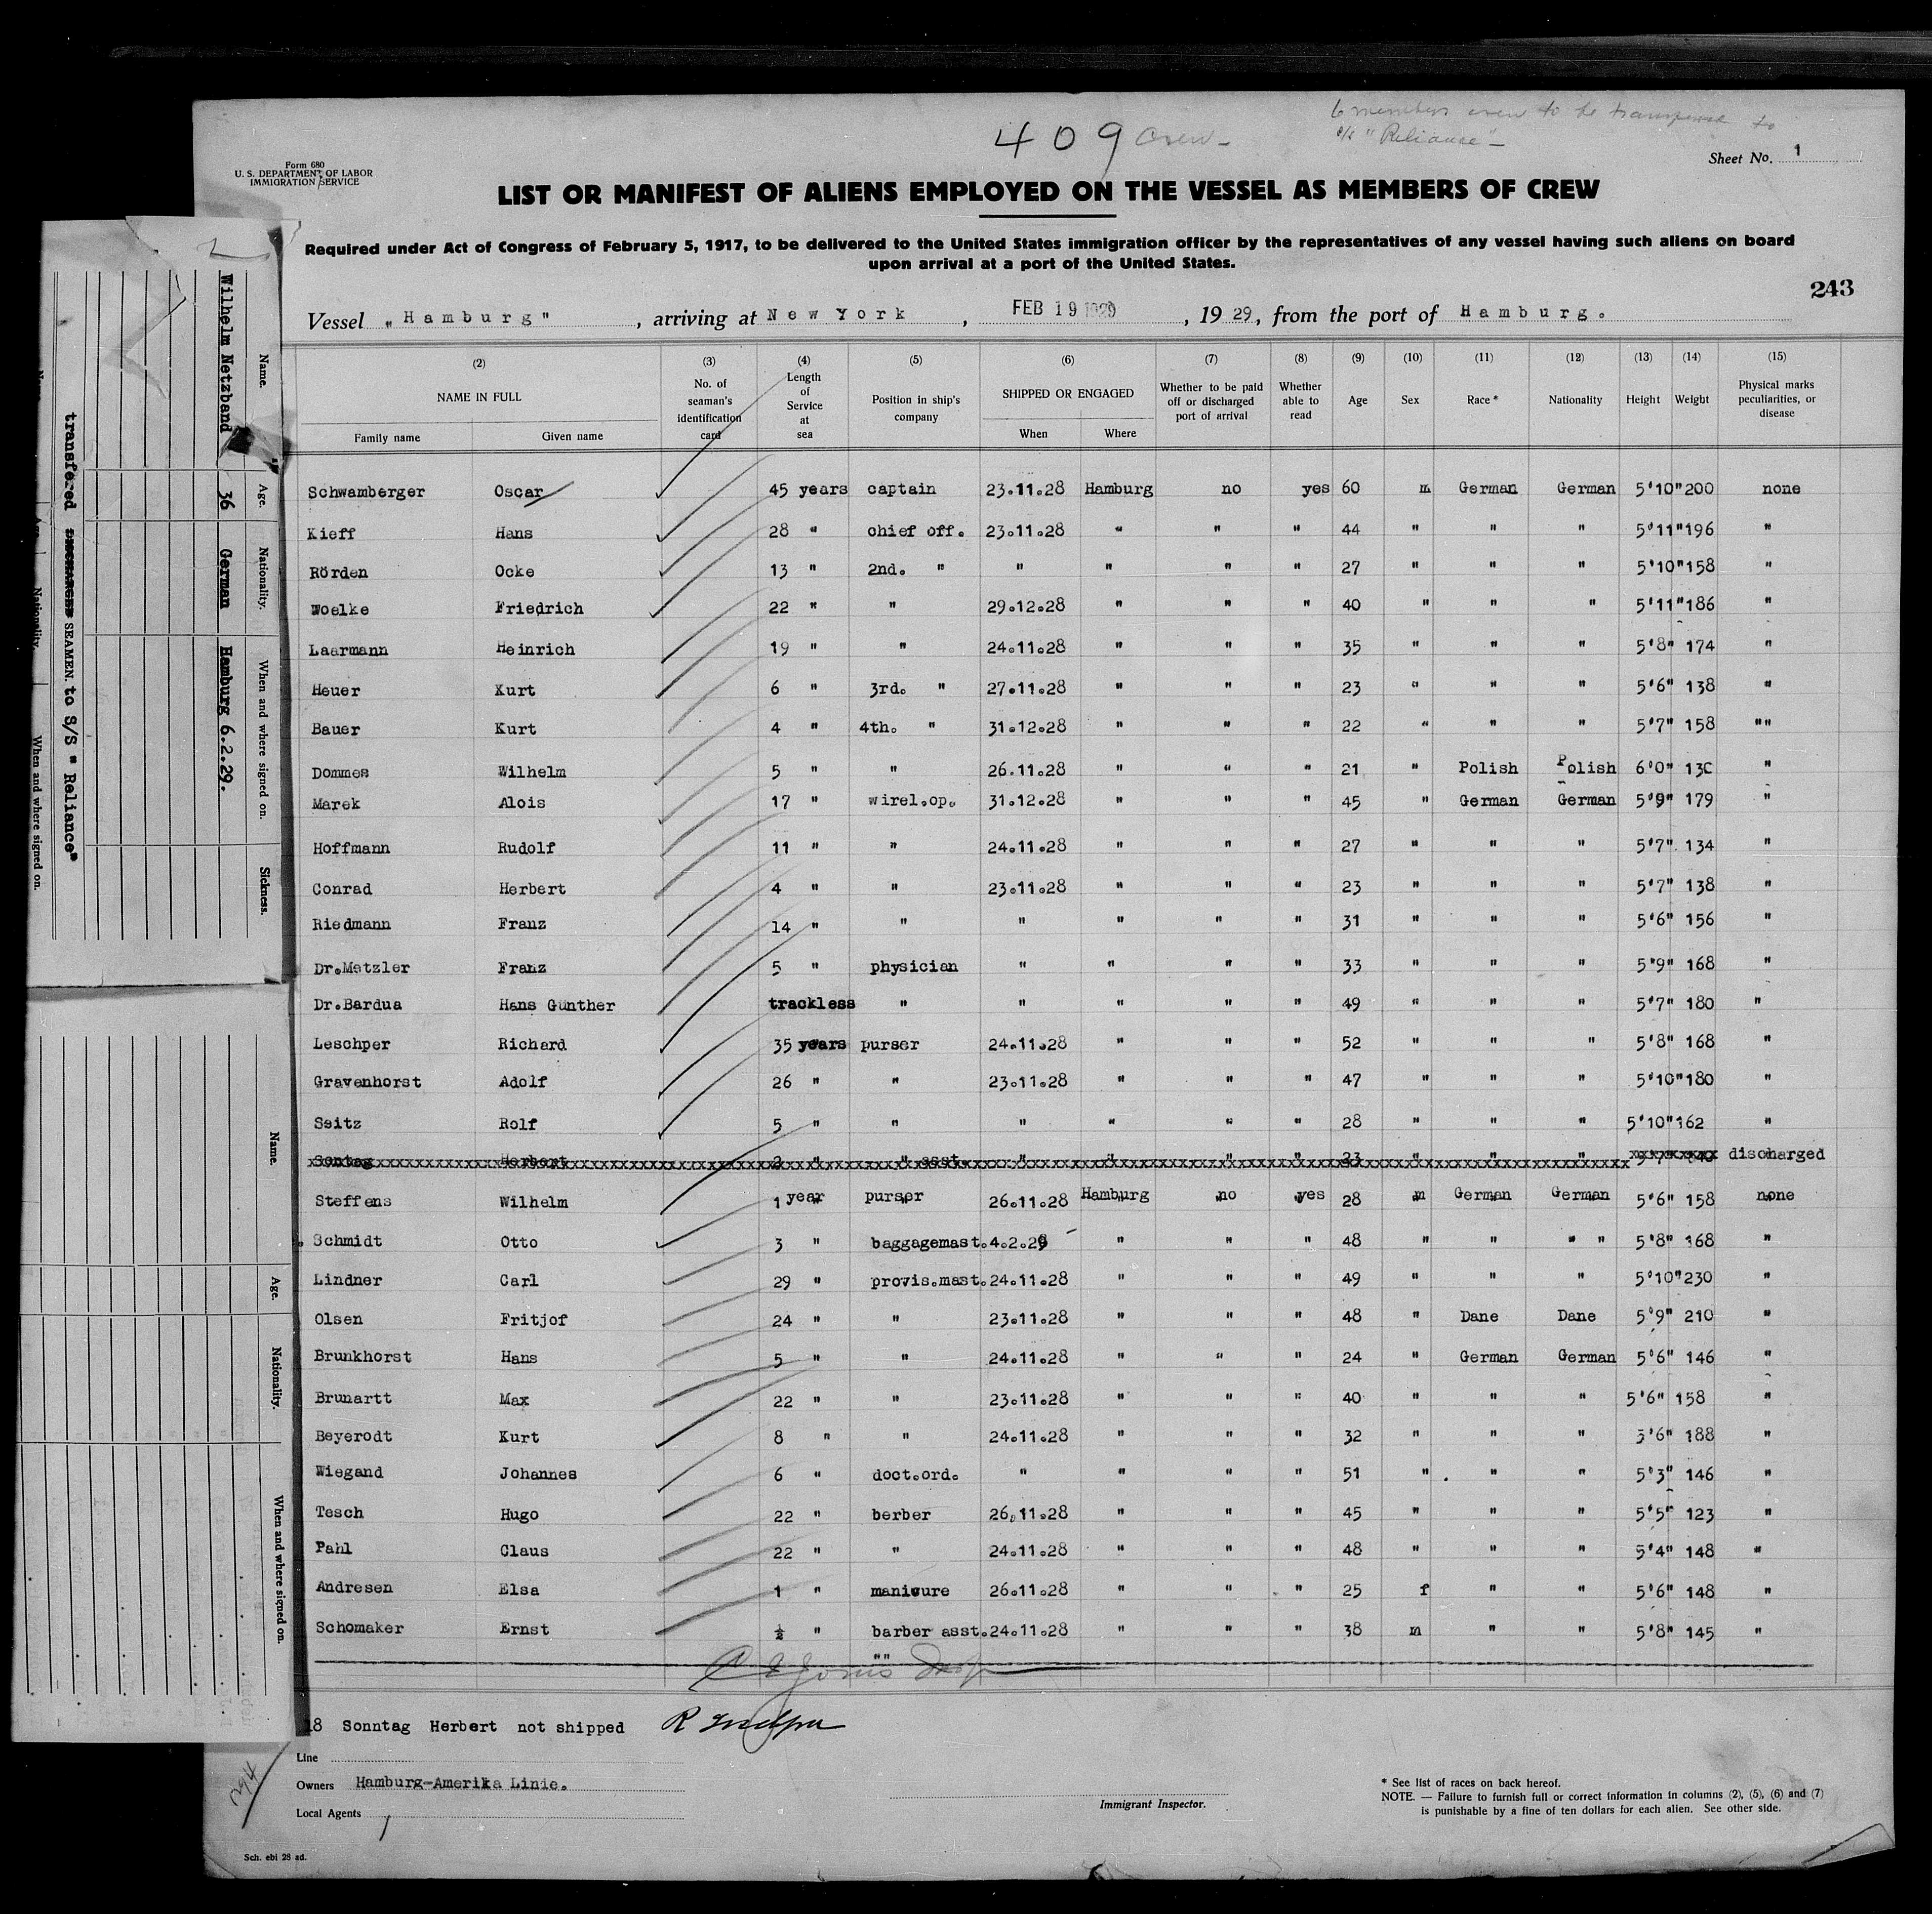 6 members crew to be
409 crew - s/s "Reliance" -
Form 680
U. S. DEPARTMENT OF LABOR
IMMIGRATION SERVICE
Sheet No. 1
LIST OR MANIFEST OF ALIENS EMPLOYED ON THE VESSEL AS MEMBERS OF CREW
Required under Act of Congress of February 5, 1917, to be delivered to the United States immigration officer by the representatives of any vessel having such aliens on board
upon arrival at a port of the United States.
243
Vessel „Hamburg" , arriving at New York , FEB 19 1929 , 1929, from the port of Hamburg.
(2) (3) (4) (5) (6) (7) (8) (9) (10) (11) (12) (13) (14) (15)
NAME IN FULL No. of seaman's identification card Length of Service at sea Position in ship's company SHIPPED OR ENGAGED Whether to be paid off or discharged port of arrival Whether able to read Age Sex Race* Nationality Height Weight Physical marks peculiarities, or disease
Family name Given name When Where
Schwamberger Oscar 45 years captain 23.11.28 Hamburg no yes 60 m German German 5'10" 200 none
Kieff Hans 28 " chief off. 23.11.28 " " " 44 " " " 5'11" 196 "
Rörden Ocke 13 " 2nd. " " " " " 27 " " " 5'10" 158 "
Woelke Friedrich 22 " " 29.12.28 " " " 40 " " " 5'11" 186 "
Laarmann Heinrich 19 " " 24.11.28 " " " 35 " " " 5'8" 174 "
Heuer Kurt 6 " 3rd. " 27.11.28 " " " 23 " " " 5'6" 138 "
Bauer Kurt 4 " 4th. " 31.12.28 " " " 22 " " " 5'7" 158 ""
Dommes Wilhelm 5 " " 26.11.28 " " " 21 " Polish Polish 6'0" 130 "
Marek Alois 17 " wirel.op. 31.12.28 " " " 45 " German German 5'9" 179 "
Hoffmann Rudolf 11 " " 24.11.28 " " " 27 " " " 5'7" 134 "
Conrad Herbert 4 " " 23.11.28 " " " 23 " " " 5'7" 138 "
Riedmann Franz 14 " " " " " " 31 " " " 5'6" 156 "
Dr.Metzler Franz 5 " physician " " " " 33 " " " 5'9" 168 "
Dr.Bardua Hans Günther trackless " " " " " 49 " " " 5'7" 180 "
Leschper Richard 35 years purser 24.11.28 " " " 52 " " " 5'8" 168 "
Gravenhorst Adolf 26 " " 23.11.28 " " " 47 " " " 5'10" 180 "
Seitz Rolf 5 " " " " " " 28 " " " 5'10" 162 "
Sontag Herbert 2 " " asst. " " " " 23 " " " discharged
Steffens Wilhelm 1 year purser 26.11.28 Hamburg no yes 28 m German German 5'6" 158 none
Schmidt Otto 3 " baggagemast. 4.2.29 " " " 48 " " " " 5'8" 168 "
Lindner Carl 29 " provis.mast. 24.11.28 " " " 49 " " " 5'10" 230 "
Olsen Fritjof 24 " " 23.11.28 " " " 48 " Dane Dane 5'9" 210 "
Brunkhorst Hans 5 " " 24.11.28 " " " 24 " German German 5'6" 146 "
Brunartt Max 22 " " 23.11.28 " " " 40 " " " 5'6" 158 "
Beyerodt Kurt 8 " " 24.11.28 " " " 32 " " " 5'6" 188 "
Wiegand Johannes 6 " doct.ord. " " " " 51 " " " 5'3" 146 "
Tesch Hugo 22 " berber 26.11.28 " " " 45 " " " 5'5" 123 "
Pahl Claus 22 " " 24.11.28 " " " 48 " " " 5'4" 148 "
Andresen Elsa 1 " manicure 26.11.28 " " " 25 f " " 5'6" 148 "
Schomaker Ernst ½ " barber asst. 24.11.28 " " " 38 m " " 5'8" 145 "
""
18 Sonntag Herbert not shipped
Line
Owners Hamburg-Amerika Linie.
Local Agents
Immigrant Inspector.
* See list of races on back hereof.
NOTE. — Failure to furnish full or correct information in columns (2), (5), (6) and (7)
is punishable by a fine of ten dollars for each alien. See other side.
Sch. ebi 28 ad.
294
2
Name. Age. Nationality. When and where signed on. Sickness.
Wilhelm Netzband 36 German Hamburg 6.2.29.
transfered DISCHARGED SEAMEN. to S/S " Reliance"
Nationality. When and where signed on.
Name. Age. Nationality. When and where signed on.